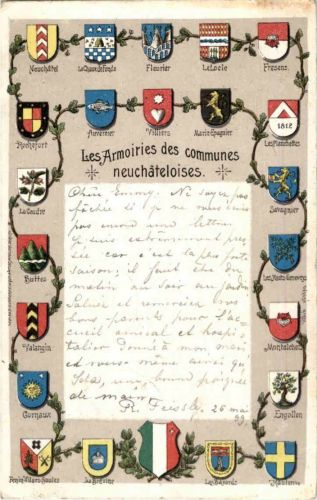 Neuchâtel
La Chaux de fonds
Fleurier
Le Locle
Fresens
Rochefort
Auvernier
Villiers
Marin-Epagnier
1812
Les Planchettes
Les Armoiries des communes
neuchâteloises.
La Coudre
Savagnier
Buttes
Les Hauts-Geneveys
Valangin
Montalchez
Cornaux
Engollon
La Brévine
Les Bayards
Chère Emmy, Ne soyez pas
fâchée si je ne vous écris
pas encore une lettre.
Je suis extrêmement pressée
car c'est la plus forte
saison; il faut être du
matin au soir au jardin
Saluez et remerciez vos
bons parents pour l'accueil
amical et hospitalier
mon mari
et même ainsi que
une bonne poignée
de main.
26 mai
99.